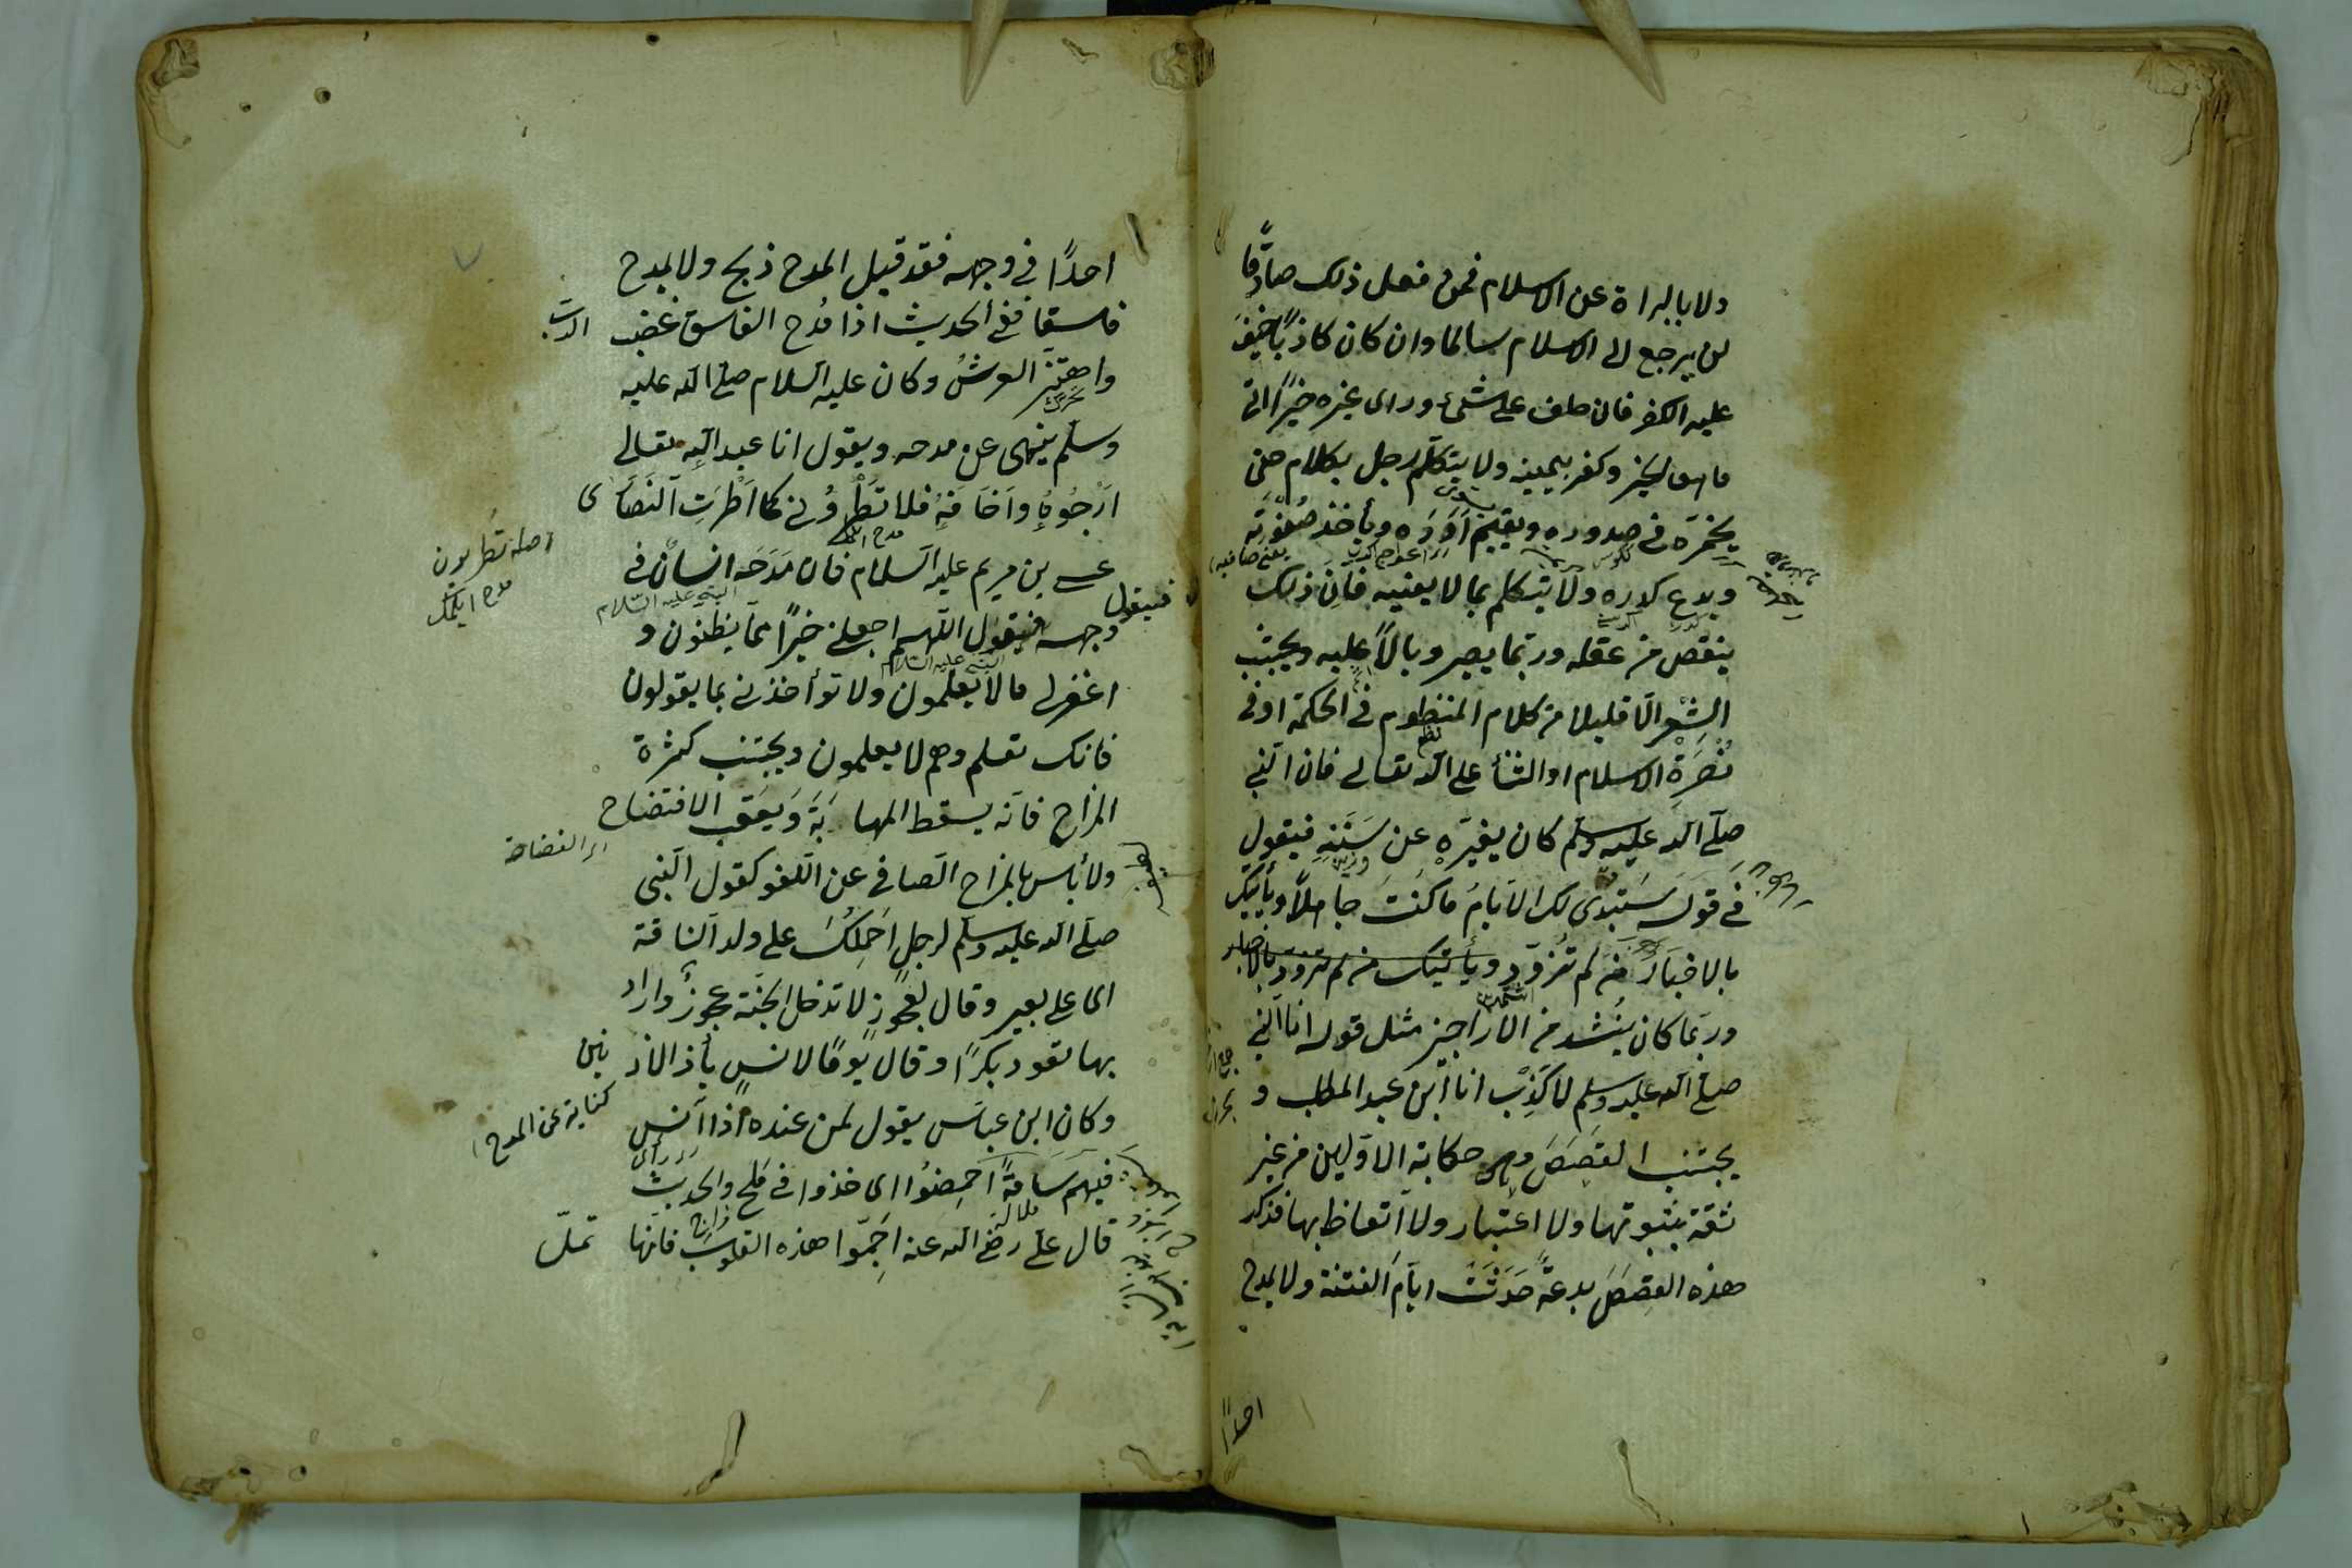 ولا بالبراة عن الاسلام فمن فعل ذلك صادقًا
لن يرجع الى الاسلام سالما وان كان كاذبًا خيفَ
عليه الكفر فان حلف على شئ وراى غيره خيرًا اتى
ما هو الخير وكفر بيمينه ولا يتكلّم لرجل بكلام حتى
يخمّره فى صدوره ويقيّم اَوَدَه ويأخذ صُفْوَتَه
ويدع كدره ولا يتكلم بما لا يعنيه فانّ ذلك
ينقص من عقله وربّما يصير وبالًا عليه ويجتنب
الشِّعْر الّا قليلا من كلام المنظوم فى الحكمة او فى
نُصْرَةِ الاسلام او الثنأ على اللّه تعالى فان النّبي
صلّى اللّه عليه وسلم كان يغيّره عن سَنَنِه فيقول
فى قوله سَتبدى لك الايّامُ ما كنتَ جاهلًا ويأتيك
بالاخبار مَن لم تُزوّدِ ويأتيك من لم تزود بالاخبار
وربّما كان يُنشد من الاراجيز مثل قوله انا النّبي
صلّى اللّه عليه وسلم لا كَذِبْ انا ابن عبد المطلب و
يجتنب القصصَ وهى حكاية الاوّلين من غير
ثقة بثبوتها ولا اعتبار ولا اتّعاظ بها فذكر
هذه القِصَصَ بدعةٌ حَدَثَتْ ايّام الفتنة ولا يمدح
احدًا
احدًا فى وجهه فقد قيل المدح ذبح ولا يمدح
فاسقا ففى الحديث اذا مُدح الفاسق غضب الربّ
واهتزّ العرشُ وكان عليه السلام صلّى اللّه عليه
وسلّم ينهى عن مدحه ويقول انا عبد اللّه تعالى
اَرْجُوهُ واَخَافَهُ فلا تَطْرُوُنى كما اَطْرَتِ النَّصَارى
عيسى بن مريم عليه السلام فان مَدَحَه انسانٌ فى
النبى عليه السلام
فيقول
وجهه فيقول اللّهم اجعلنى خيرًا ممّا يظنون و
النبى عليه السلام
اغفر لى ما لا يعلمون ولا تؤأخذنى بما يقولون
فانك تعلم وهم لا يعلمون ويجتنب كثرة
المزاح فانّه يسقط المهابَةَ وَيَعقب الافتضاح
ولا بأس بالمزاح الصافى عن اللّغو كقول النّبى
صلّى اللّه عليه وسلّم لرجلٍ اَحمِلكَ على ولد النّاقة
اى على بعير وقال لعجوزٍ لا تدخل الجنّة عجوزٌ واراد
بها تعود بكرًا وقال يومًا لانسٍ يأذ الاذنين
وكان ابن عباسٍ يقول لمن عنده اذا آنس
كناية عن المدح
فيهم سَامةً احمِضُوا اى خذوا فى مُلَحِ والحديث
قال على رضى اللّه عنه اَجِمّوا هذه القلوب فانّها تملّ